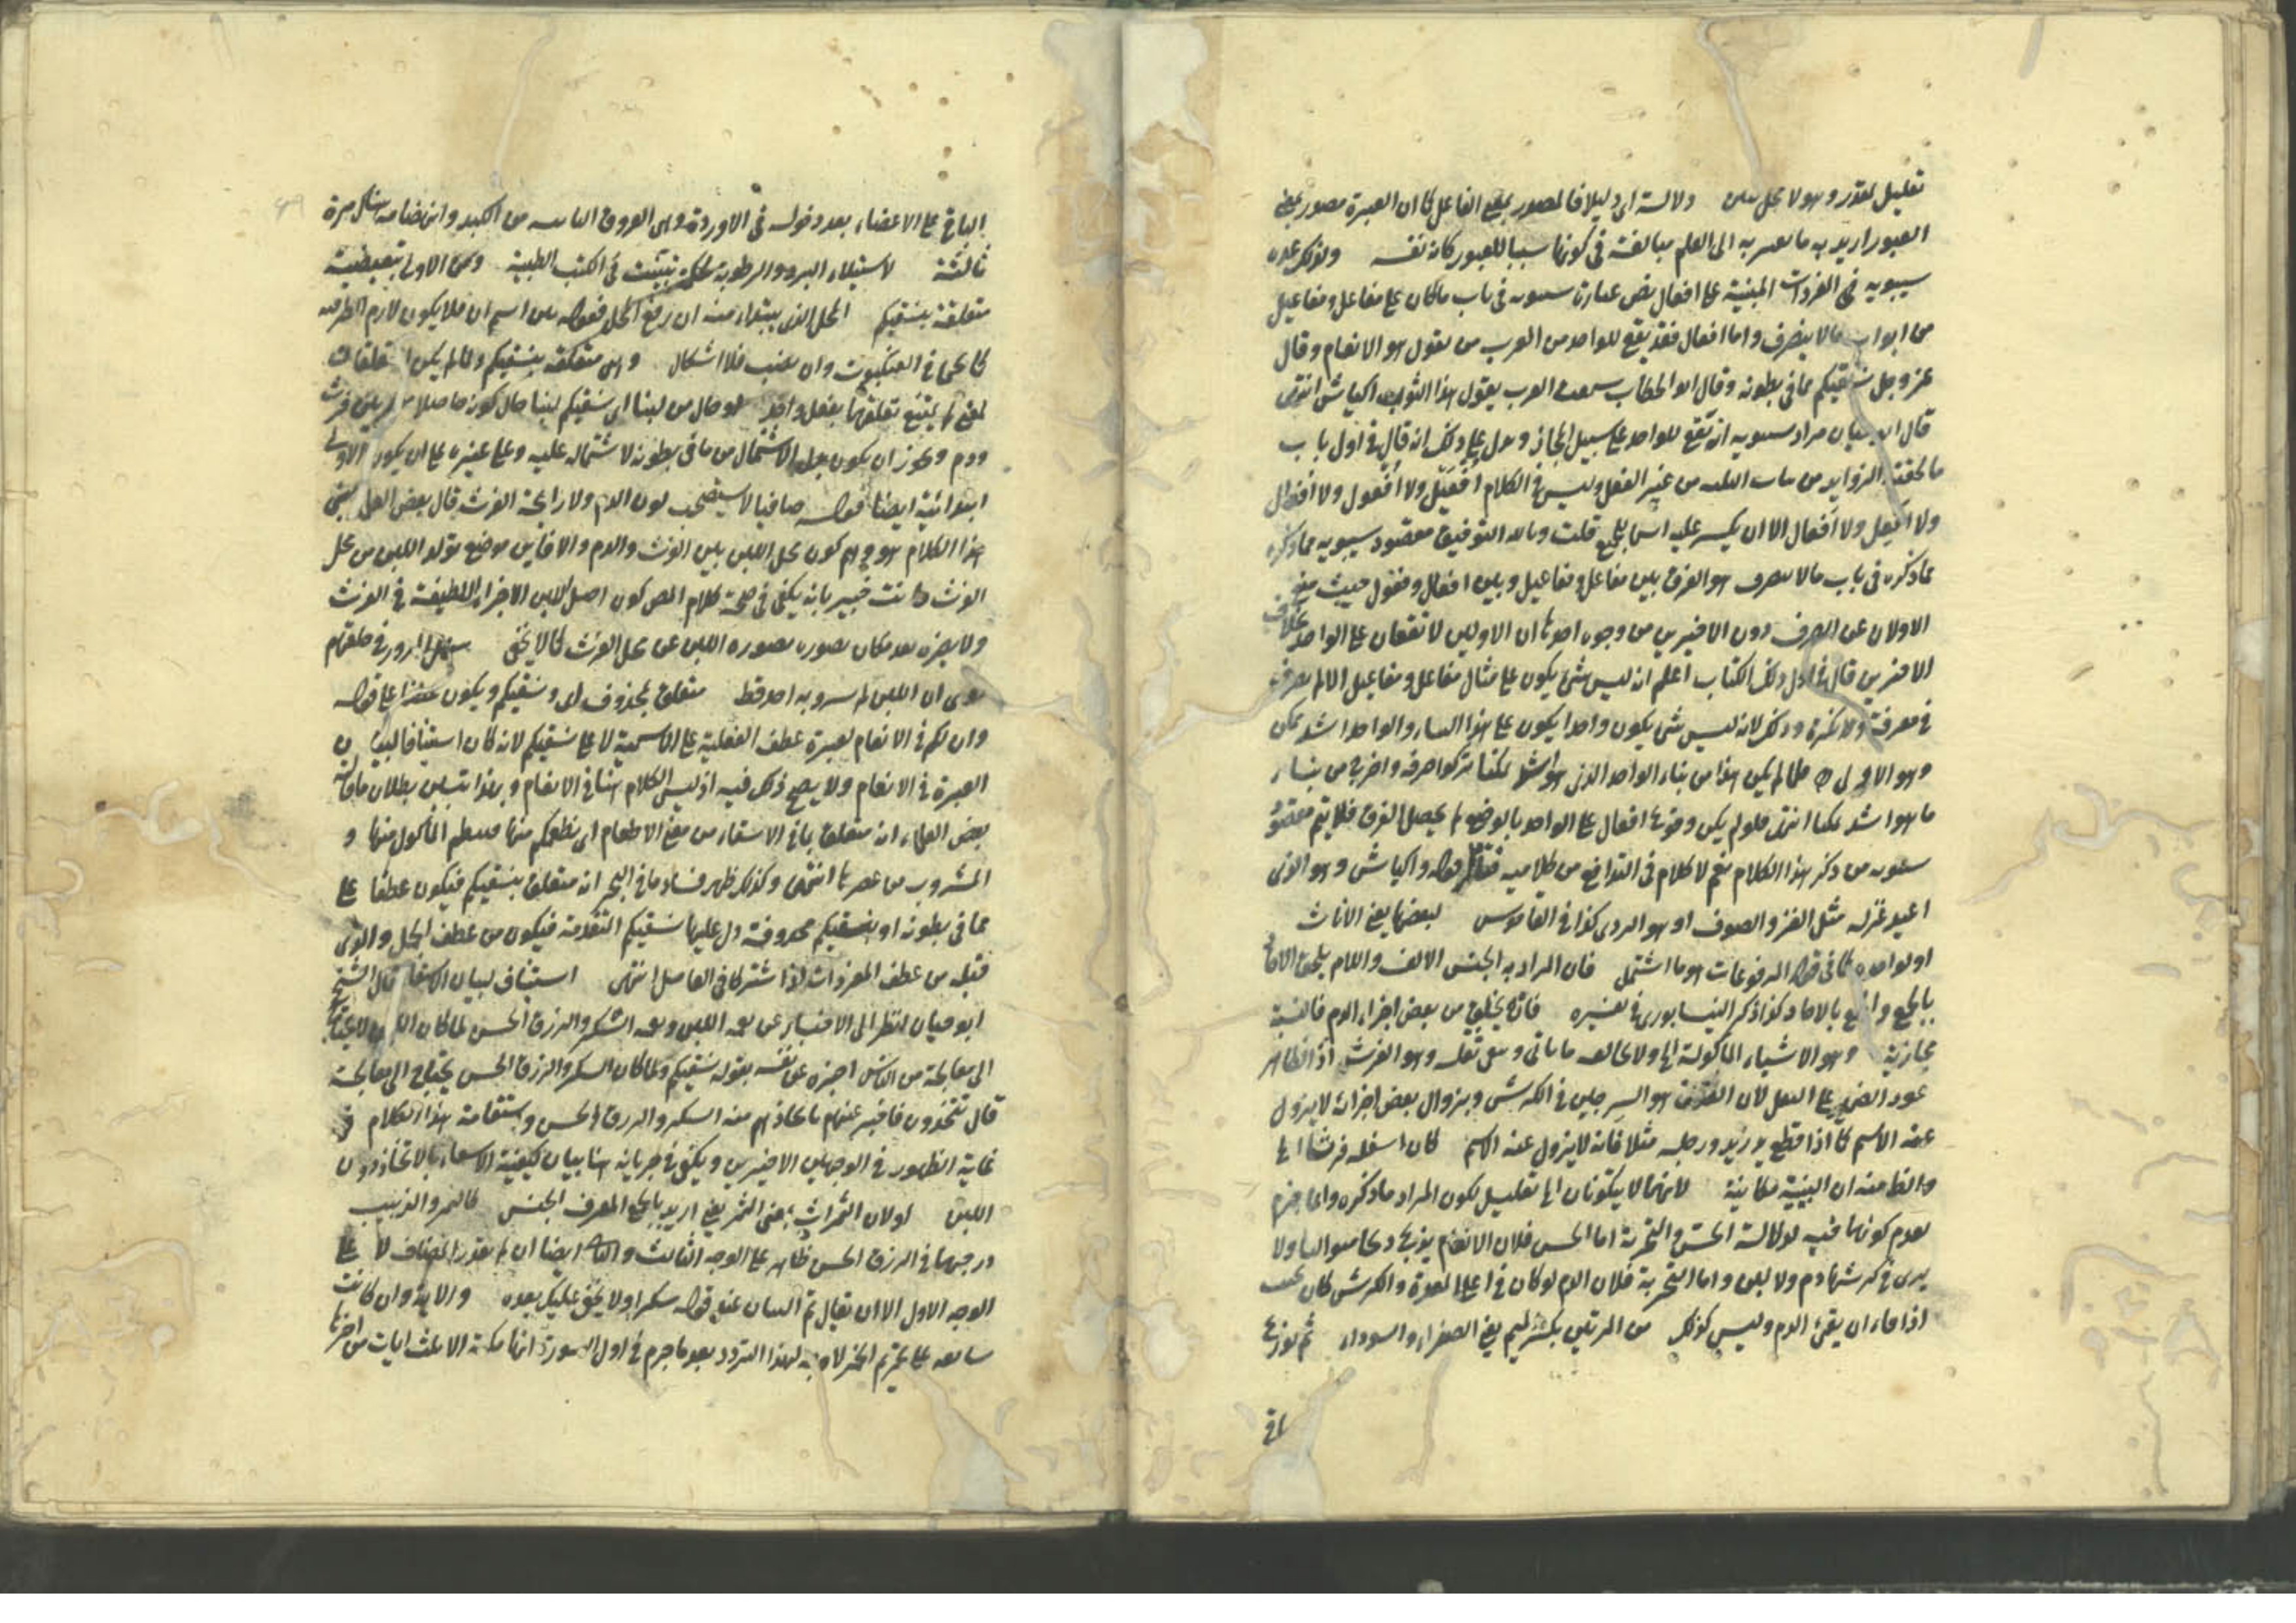 تعليل مقدر وهو لا محل دلالة اى دليلا فالمصدر بمعنى الفاعل كما ان العبرة مصدر بمعنى
العبور اريد به ما يعبر به الى العلم مبالغة فى كونها سببا للعبور كانه نفسه ولذلك عده
سيبويه فى المفردات المبنية على افعال نص عبارة سيبويه فى باب ما كان على مفاعل ومفاعيل
من ابواب مالا ينصرف واما افعال فقد يقع للواحد من العرب من يقول هو الانعام وقال
عز وجل نسقيكم مما فى بطونه وقال ابو الخطاب سمعت العرب يقول هذا الثوب اكياش انتهى
قال ابو حيان مراد سيبويه انه يقع للواحد على سبيل المجاز ويدل على ذلك انه قال فى اول باب
ما لحقته الزوايد من بنات الثلثة من غير الفعل وليس فى الكلام افعيل ولا افعول ولا افعال
ولا افعيل ولا افعال الا ان يكسر عليه اسما للجمع قلت وبالله التوفيق مقصود سيبويه مما ذكره
مما ذكره فى باب مالا ينصرف هو الفرق بين مفاعل ومفاعيل وبين افعال وفعول حيث منع
الاولان عن الصرف دون الاخيرين من وجوه احدها ان الاولين لا تقعان على الواحد بخلاف
الاخيرين قال فى اول ذلك الكتاب اعلم انه ليس شئ يكون على مثال مفاعل ومفاعيل الا لم ينصرف
فى معرفة ولا نكرة وذلك لانه ليس شئ يكون واحدا يكون على هذا البناء والواحد اشد تمكن
وهو الاول فلما لم يكن هذا من بناء الواحد الذى هو اشد تمكنا تركوا صرفه واخرج من بناء
ما هو اشد تمكنا انتهى فلو لم يكن وقوع افعال على الواحد بالوضع لم يحصل الفرق فلا يتم مقصود
سيبويه من ذكر هذا الكلام نعم لا كلام فى التدافع من كلاميه فتأمل قوله واكياش وهو الذى
اعيد غزله مثل الخز والصوف او هو الردى كذا فى القاموس لبعضها يعنى الاناث
او لواحده كما فى قوله المرفوعات هو ما اشتمل فان المراد به الجنس الالف واللام يلحق الاحاد
بالجمع والجمع بالاحاد كذا ذكر النيسابورى فى تفسيره فانه يخلق من بعض اجزاء الدم فالنسبة
مجازية وهو الاشياء الماكولة اه ولا يخالفه ما ياتى ويبقى ثفله وهو الفرث اذ الظاهر
عود الضمير على الثفل لان الفرث هو السرجين فى الكرش وبزوال بعض اجزائه لا يزول
عنه الاسم كما اذا قطع يد زيد ورجله مثلا فانه لا يزول عنه الاسم كان اسفله فرثا اه
والظ منه ان البينية مكانية لانهما لا يتكونان اه تعليل لكون المراد ما ذكره وانما جزم
بعدم كونها فيه لدلالة الحس والتجربة اما الحس فلان الانعام يذبح ولا
يرى فى كرشها دم ولا لبن واما التجربة فلان الدم لو كان فى اعلى المعدة والكرش كان يجب
اذا قاء ان يقئ الدم وليس كذلك من المرتين بكسر الميم يعنى الصفراء والسوداء ثم يوزع
اق
الباقى على الاعضاء بعد دخوله فى الاوردة وهى العروق النابتة من الكبد وانهضامه هناك مرة
ثالثة لاستيلاء البرد والرطوبة تبينت فى الكتب الطبية ومن الاولى تبعيضية
متعلقة بنسقيكم المحل الذى يبتداء منه ان رفع المحل فقوله من اسم ان فلا يكون لازم الظرفية
كما فى العنكبوت وان نصب فلا اشكال وهى متعلقة بنسقيكم ولما لم يكن متعلقات
لم يمتنع تعلقهما بفعل واحد او حال من لبنا اى نسقيكم لبنا حال كونه حاصلا من بين فرث
ودم ويجوز ان يكون بدل الاشتمال من ما فى بطونه لاشتماله عليه وعلى غيره على ان يكون الاولى
ابتدائية ايضا قوله صافيا لا يستصحب لون الدم ولا رايحة الفرث قال بعض العلماء يعنى
هذا الكلام هو كون محل اللبن بين الفرث والدم والا فاين موضع تولد اللبن من محل
الفرث وانت خبير بانه يكفى فى صحة كلام المص كون اصل اللبن الاجزاء اللطيفة فى الفرث
ولا يضره بعد مكان تصوره بصورة اللبن عن محل الفرث كما لا يخفى سهل المرور فى حلقهم
روى ان اللبن لم يشرق به احد قط متعلق بمحذوف اى ونسقيكم ويكون عطفا على قوله
وان لكم فى الانعام لعبرة عطف الفعلية على الاسمية لا على نسقيكم لانه كان استينافا لبيان
العبرة فى الانعام ولا يصح ذلك فيه اذ ليس الكلام هنا فى الانعام وبهذا تبين بطلان ما قاله
بعض العلماء انه متعلق بما فى الاسقاء من معنى الاطعام اى نطعمكم منها الماكول منها و
المشروب من عصيرها انتهى وكذلك ظهر فساد ما فى البحر انه متعلق بنسقيكم فيكون عطفا على
مما فى بطونه او بنسقيكم محذوفة دل عليها نسقيكم المتقدمة فيكون من عطف الجمل والذى
قبله من عطف المفردات اذا اشتركا فى العامل انتهى استيناف لبيان الاسقاء قال الشيخ
ابو حيان انظر الى الاخبار عن نعمة اللبن ونعمة السكر والرزق الحسن لما كان اللبن لا يحتاج
الى معالجة من الناس اخبره عن نفسه بقوله نسقيكم ولما كان السكر والرزق الحسن يحتاج الى معالجة
قال تتخذون فاخبر عنهم باتخاذهم منه السكر والرزق الحسن واستقامة هذا الكلام فى
غاية الظهور فى الوجهين الاخيرين ويكفى فى جريانه هنا بيان كيفية الاسقاء بالاتخاذ دون
اللبن او لان الثمرات بمعنى الثمر يعنى اريد بالجمع المعرف الجنس كالتمر والزبيب
درجهما فى الرزق الحسن ظاهر على الوجه الثالث والثانى ايضا ان لم يقدر المضاف لا على
الوجه الاول الا ان يقال تم البيان عند قوله سكرا ولا يخفى عليك بعده والاية وان كانت
سابقة على تحريم الخمر لا وجه لهذا التردد بعد ما جزم فى اول السورة انها مكية الا ثلث ايات من اخرها